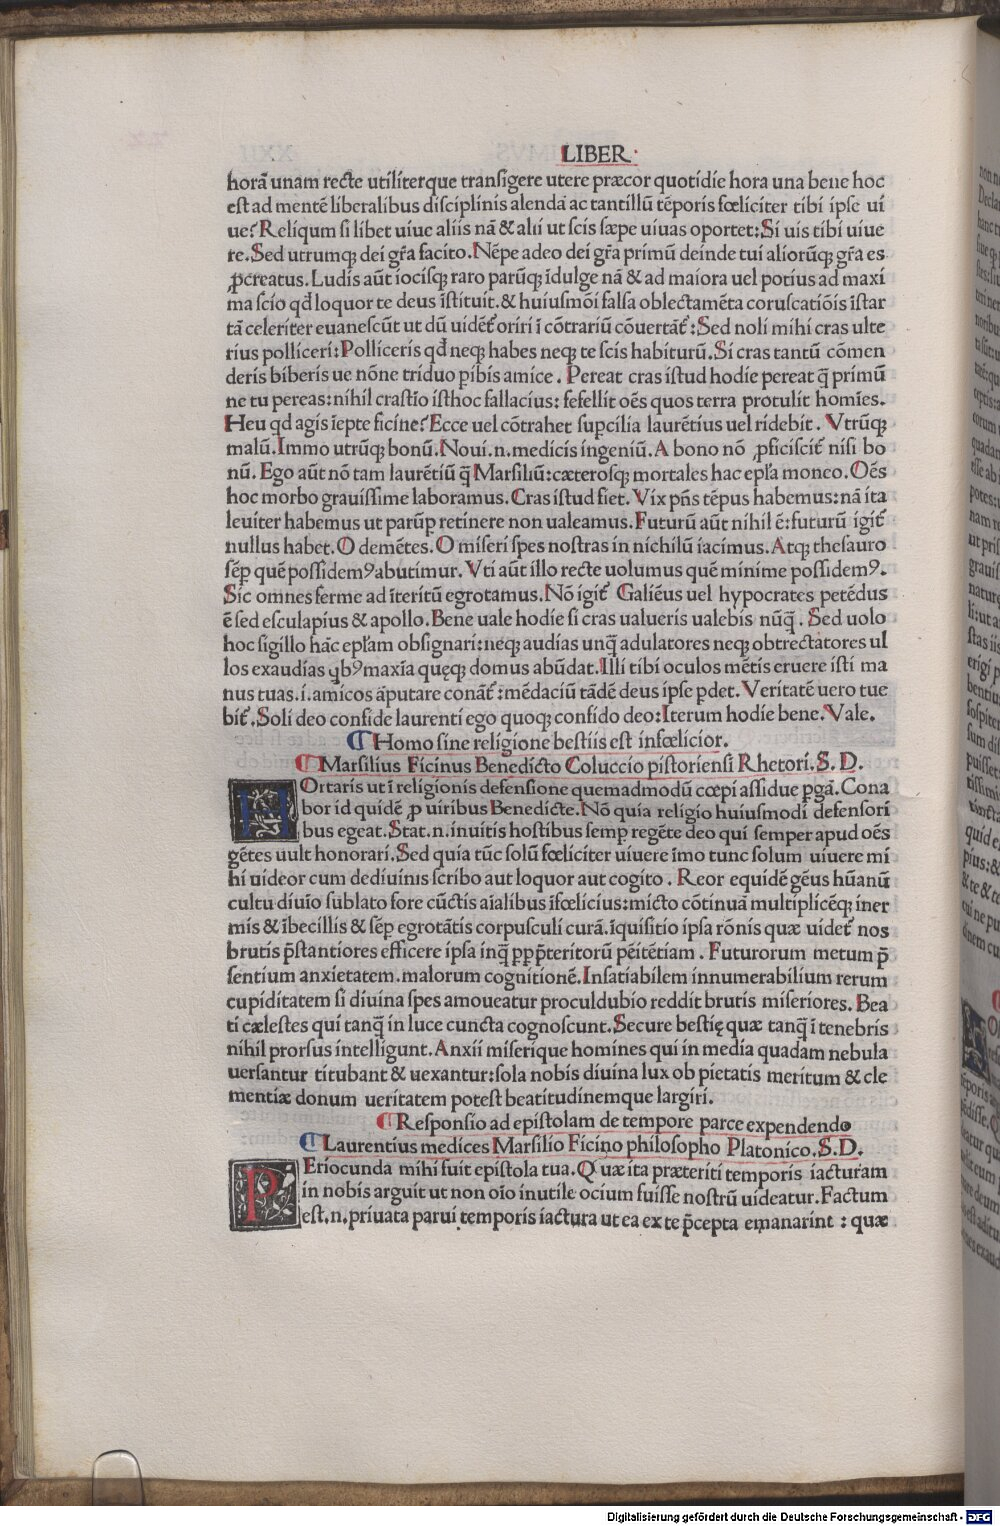 LIBER
horā unam recte utiliterque transigere utere præcor quotidie hora una bene hoc
est ad mentē liberalibus disciplinis alendā ac tantillū tēporis fœliciter tibi ipse ui
ue? Reliqum si libet uiue aliis nā & alii ut scis sæpe uiuas oportet: Si uis tibi uiue
re. Sed utrumqꝫ dei gr̃a facito. Nēpe adeo dei gr̃a primū deinde tui aliorūqꝫ gr̃a es
ꝓcreatus. Ludis aūt iocisqꝫ raro parūqꝫ īdulge nā & ad maiora uel potius ad maxi
ma scio qđ loquor te deus īstituit. & huiusmōi falsa oblectamēta coruscatiōis īstar
tā celeriter euanescūt ut dū uidēt᷑ oriri ī cōtrariū cōuertāt᷑: Sed noli mihi cras ulte
rius polliceri: Polliceris qđ neqꝫ habes neqꝫ te scis habiturū. Si cras tantū cōmen
deris biberis ue nōne triduo pibis amice. Pereat cras istud hodie pereat q̄ primū
ne tu pereas: nihil crastīo isthoc fallacius: fefellit oēs quos terra protulit homīes.
Heu qd agis īepte ficine? Ecce uel cōtrahet suꝑcilia laurētius uel ridebit. Vtrūqꝫ
malū. Immo utrūqꝫ bonū. Noui. n. medicis ingeniū. A bono nō ꝓficiscit᷑ nisi bo
nū. Ego aūt nō tam laurētiū q̄ Marsiliū: cæterosqꝫ mortales hac ep̄la moneo. Oēs
hoc morbo grauissime laboramus. Cras istud fiet. Vix pn̄s tēpus habemus: nā ita
leuiter habemus ut parūꝑ retinere non ualeamus. Futurū aūt nihil ē: futurū igit᷑
nullus habet. O demētes. O miseri spes nostras in nichilū iacimus. Atqꝫ thesauro
sēꝑ quē possidemꝰ abutimur. Vti aūt illo recte uolumus quē minime possidemꝰ.
Sic omnes ferme ad īteritū egrotamus. Nō igit᷑ Galiēus uel hypocrates petēdus
ē sed esculapius & apollo. Bene uale hodie si cras ualueris ualebis nūq̄. Sed uolo
hoc sigillo hāc ep̄lam obsignari: neqꝫ audias unq̄ adulatores neqꝫ obtrectatores ul
los exaudias qbꝰ maxīa quęqꝫ domus abūdat. Illi tibi oculos mētis eruere isti ma
nus tuas. i. amicos āputare conāt᷑: mēdaciū tādē deus ipse ꝑdet. Veritatē uero tue
bit᷑. Soli deo confide laurenti ego quoqꝫ confido deo: Iterum hodie bene. Vale.
Homo sine religione bestiis est infœlicior.
Marsilius Ficinus Benedicto Coluccio pistoriensi Rhetori. S. D.
HOrtaris ut ī religionis defensione quemadmodū cœpi assidue ꝑgā. Cona
bor id quidē ꝓ uiribus Benedicte. Nō quia religio huiusmodi defensori
bus egeat. Stat. n. inuitis hostibus semꝑ regēte deo qui semper apud oēs
gētes uult honorari. Sed quia tūc solū fœliciter uiuere īmo tunc solum uiuere mi
hi uideor cum de diuinis scribo aut loquor aut cogito. Reor equidē gēus hūanū
cultu diuīo sublato fore cūctis aīalibus īfœlicius: micto cōtinuā multiplicēqꝫ iner
mis & ībecillis & sēꝑ egrotātis corpusculi curā. īquisitio ipsa rōnis quæ uidet᷑ nos
brutis p̄stantiores efficere ipsa inq̄ ꝑꝑ p̄teritorū pēitētiam. Futurorum metum p̄
sentium anxietatem. malorum cognitionē. Insatiabilem innumerabilium rerum
cupiditatem si diuina spes amoueatur proculdubio reddit brutis miseriores. Bea
ti cælestes qui tanq̄ in luce cuncta cognoscunt. Secure bestię quæ tanq̄ ī tenebris
nihil prorsus intelligunt. Anxii miserique homines qui in media quadam nebula
uersantur titubant & uexantur: sola nobis diuina lux ob pietatis meritum & cle
mentiæ donum ueritatem potest beatitudinemque largiri.
Responsio ad epistolam de tempore parce expendendo
Laurentius medices Marsilio Ficino philosopho Platonico. S. D.
PEriocunda mihi fuit epistola tua. Quæ ita præteriti temporis iacturam
in nobis arguit ut non oīo inutile ocium fuisse nostrū uideatur. Factum
est. n. priuata parui temporis iactura ut ea ex te p̄cepta emanarint: quæ
Digitalisierung gefördert durch die Deutsche Forschungsgemeinschaft - DFG